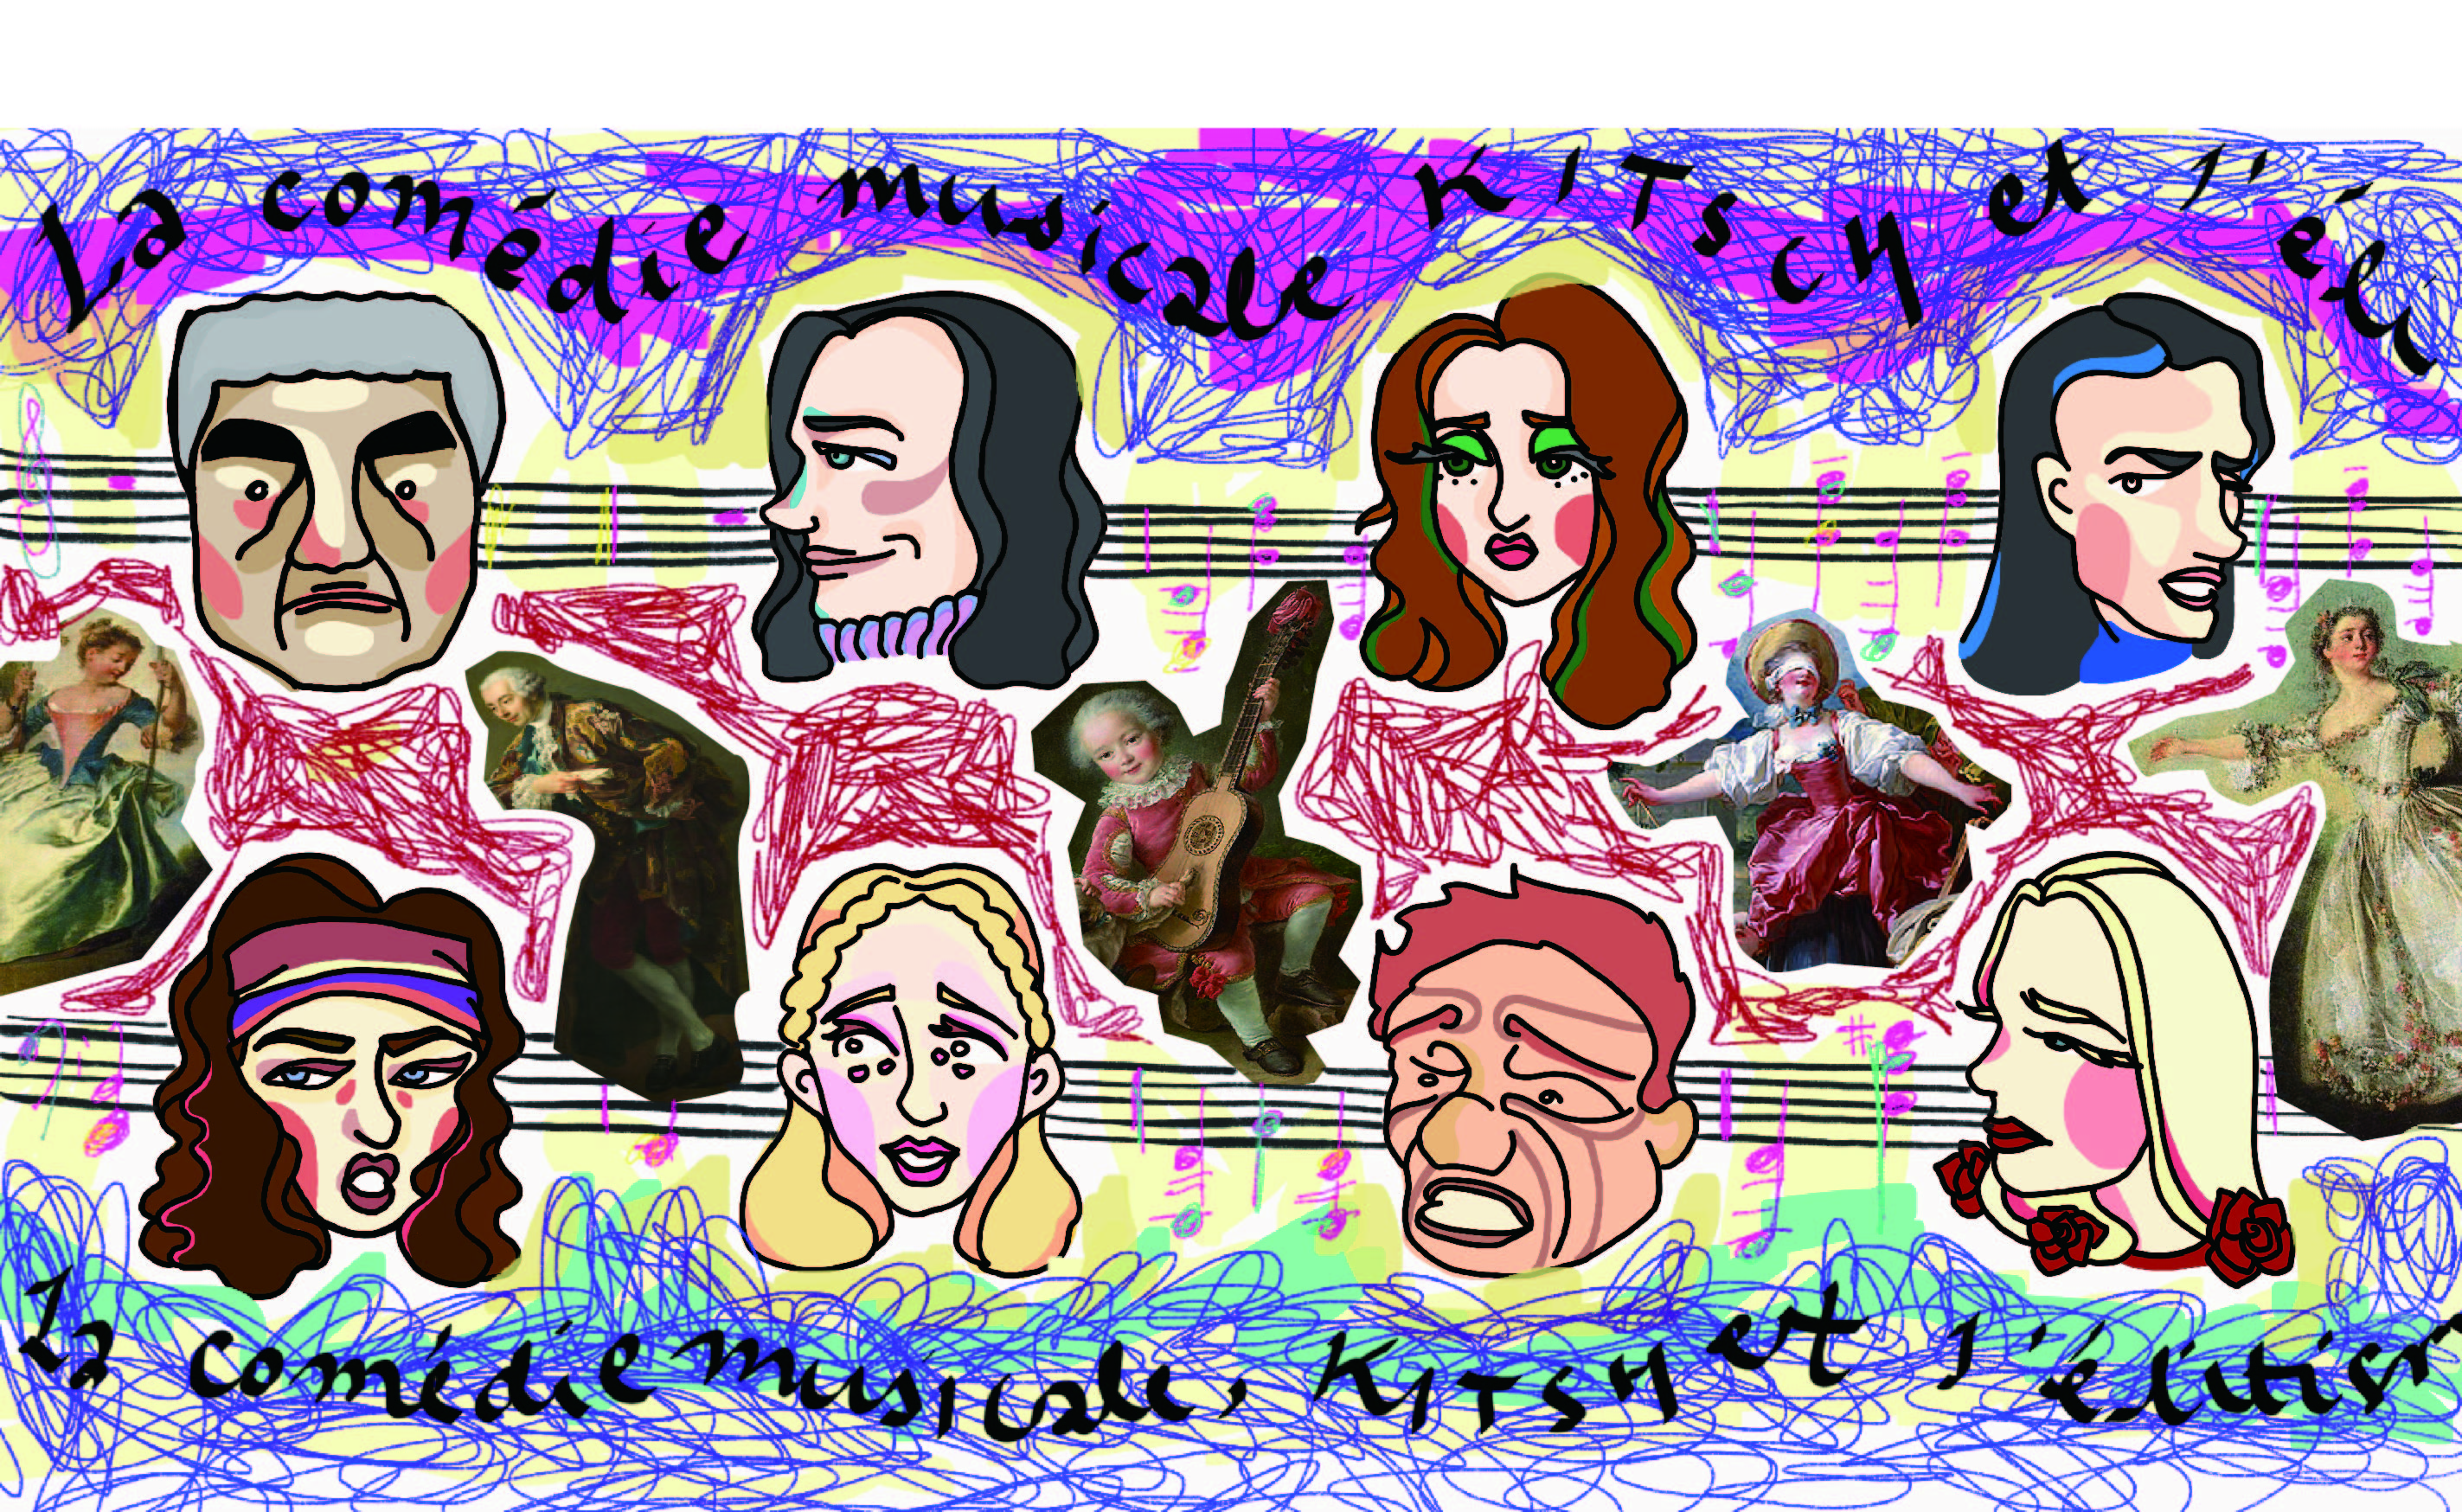 La comédie musicale KITSCH et l'éli
la comédie musicale, KITSH et l'élitism